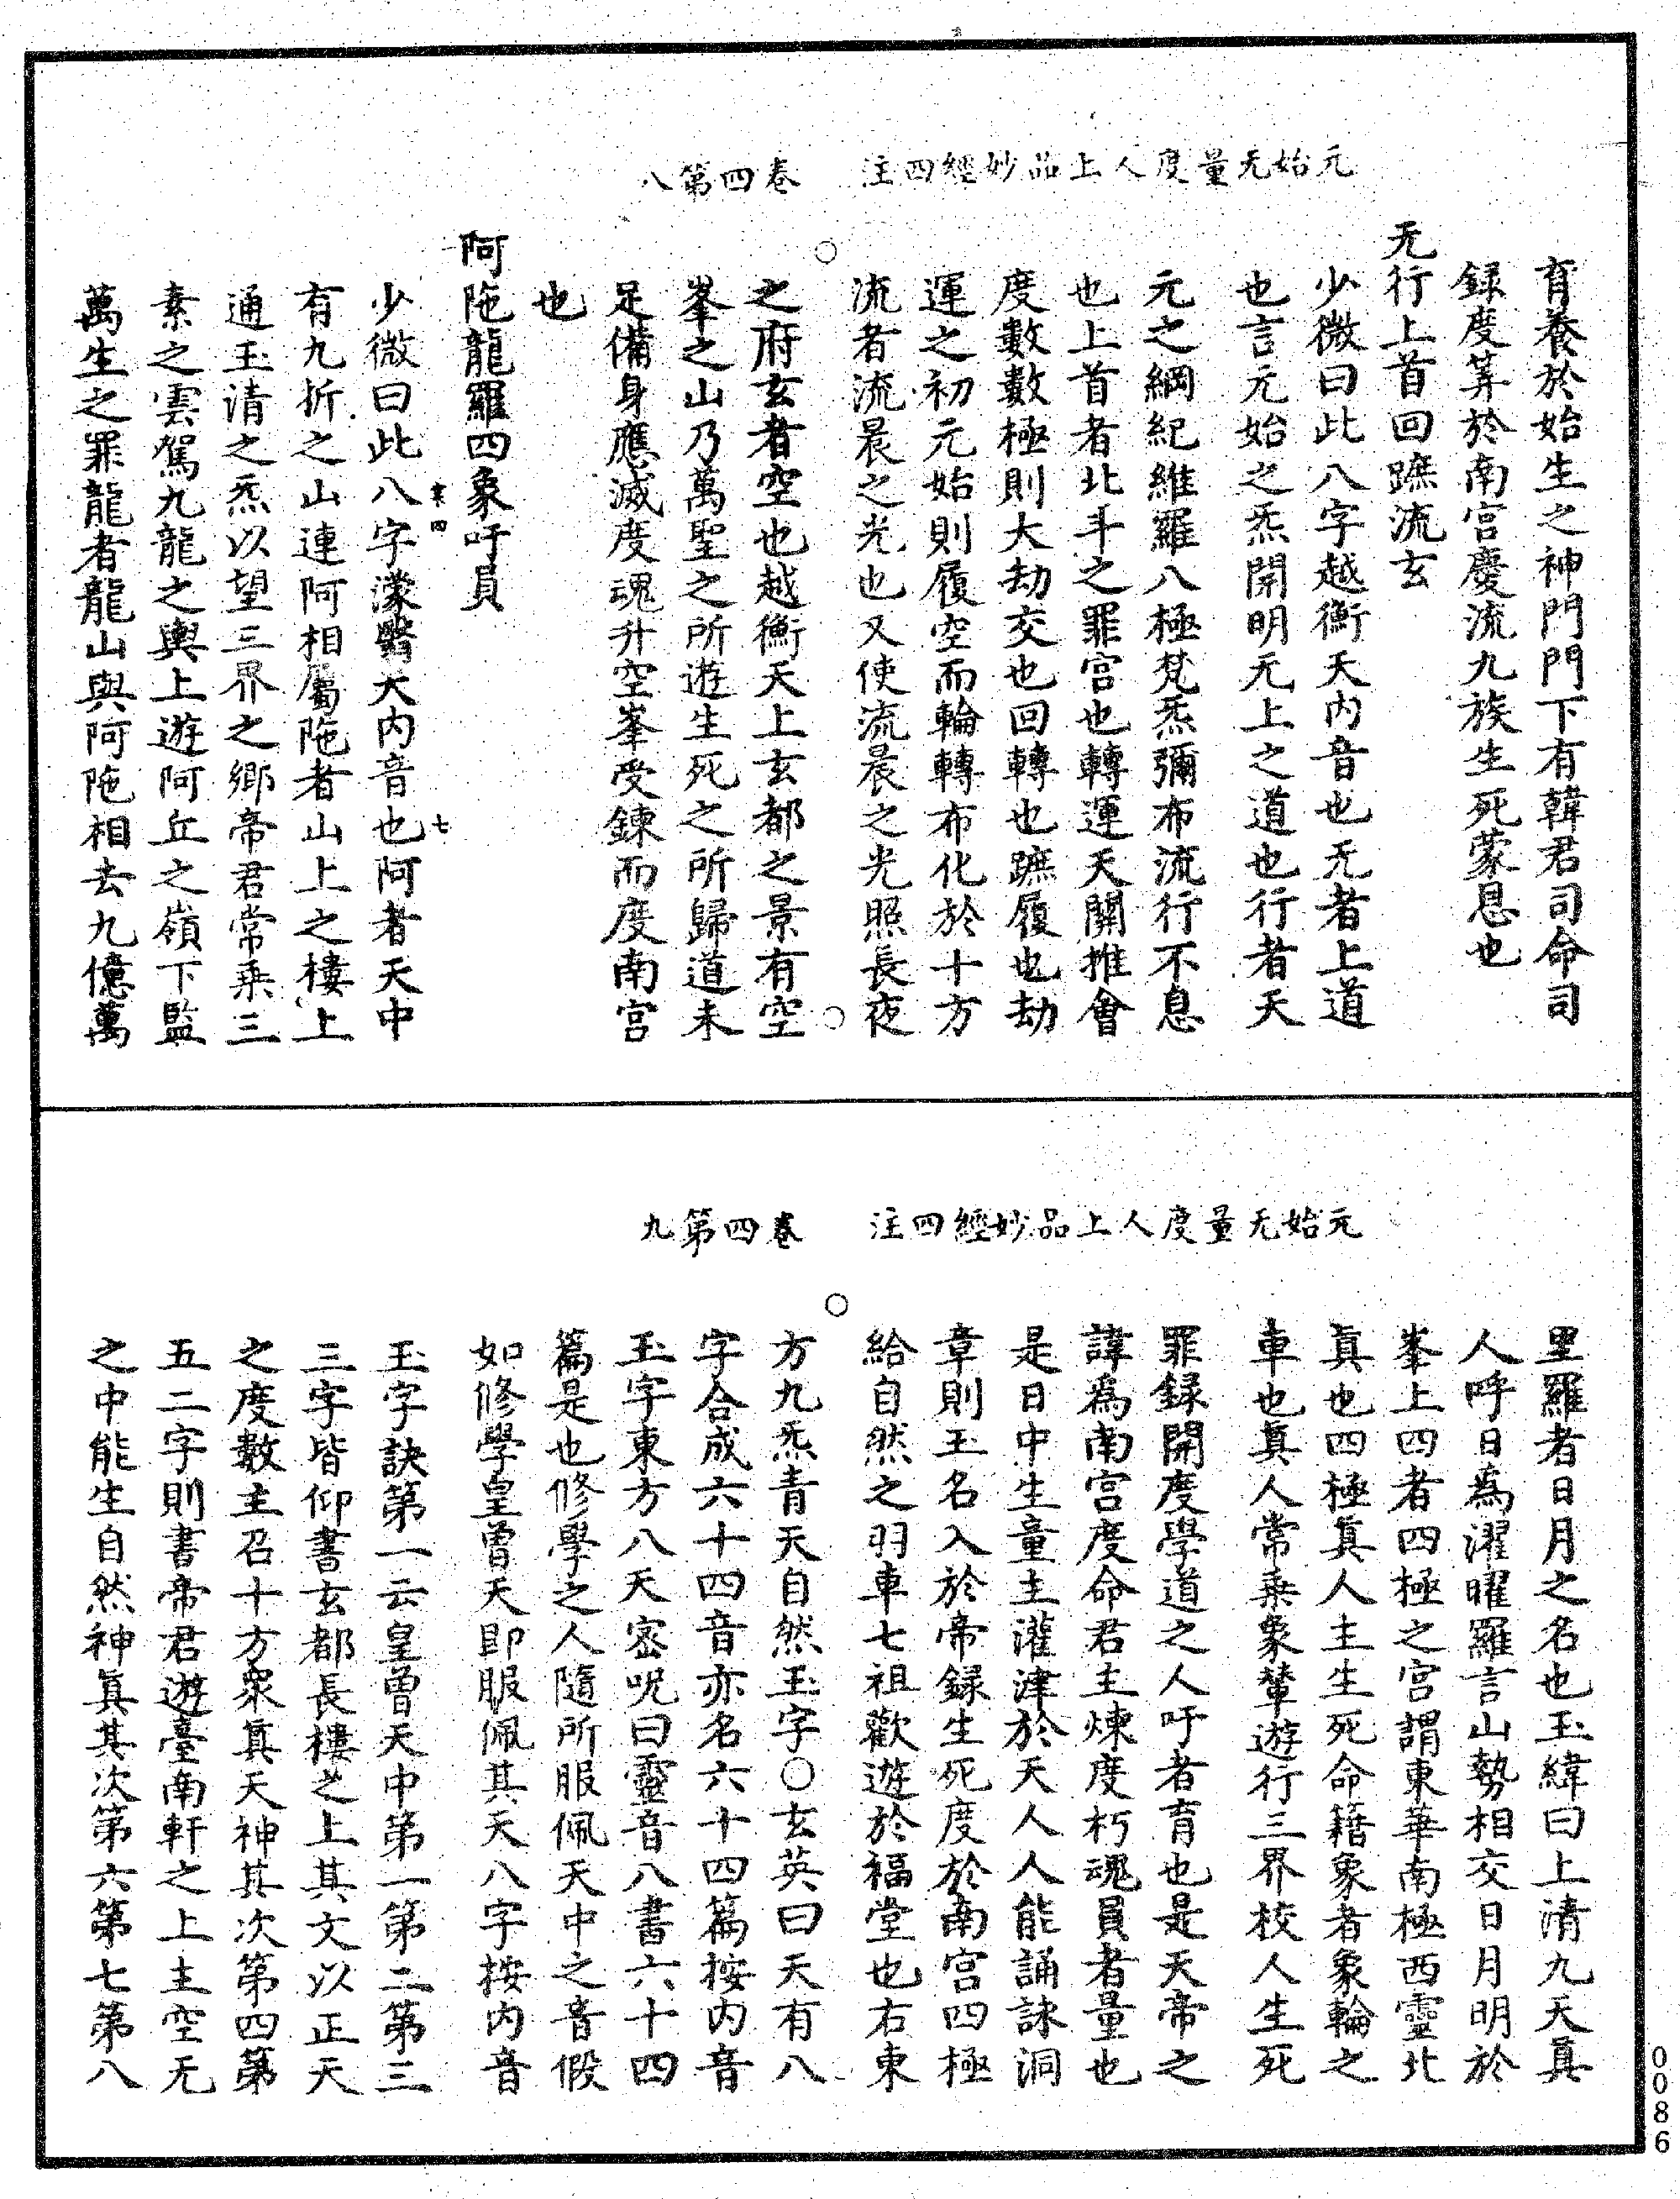 元始无量度人上品妙經四注　卷四第八
育養於始生之神門門下有韓君司命司
録度筭於南宮慶流九族生死蒙恩也
无行上首回蹠流玄
少微曰此八字越衡天內音也无者上道
也言元始之炁開明无上之道也行者天
元之綱紀維羅八極梵炁彌布流行不息
也上首者北斗之罪宮也轉運天關推會
度數數極則大劫交也回轉也蹠履也劫
運之初元始則履空而輪轉布化於十方
流者流晨之光也又使流晨之光照長夜
之府玄者空也越衡天上玄都之景有空
峯之山乃萬聖之所遊生死之所歸道未
足備身應滅度魂升空峯受鍊而度南宮
也
阿陁龍羅四象吁員
寒四　七
少微曰此八字濛翳天內音也阿者天中
有九折之山連阿相屬陁者山上之樓上
通玉清之炁以望三界之鄉帝君常乘三
素之雲駕九龍之輿上遊阿丘之嶺下監
萬生之罪龍者龍山與阿陁相去九億萬
元始无量度人上品妙經四注　卷四第九
里羅者日月之名也玉緯曰上清九天真
人呼日為濯曜羅言山勢相交日月明於
峯上四者四極之宮謂東華南極西靈北
真也四極真人主生死命籍象者象輪之
車也真人常乘象輦遊行三界校人生死
罪録開度學道之人吁者育也是天帝之
諱為南宮度命君主煉度朽魂員者量也
是日中生童主灌津於天人人能誦詠洞
章則玉名入於帝録生死度於南宮四極
給自然之羽車七祖歡遊於福堂也右東
方九炁青天自然玉字○玄英曰天有八
字合成六十四音亦名六十四篇按內音
玉字東方八天密呪曰靈音八書六十四
篇是也修學之人隨所服佩天中之音假
如修學皇曾天即服佩其天八字按內音
玉字訣第一云皇曾天中第一第二第三
三字皆仰書玄都長樓之上其文以正天
之度數主召十方衆真天神其次第四第
五二字則書帝君遊臺南軒之上主空无
之中能生自然神真其次第六第七第八
0086